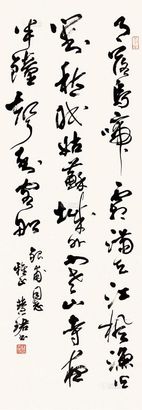 月落烏啼霜滿天江楓漁火
對愁眠姑蘇城外寒山寺夜
半鐘聲到客船
同志
雅正